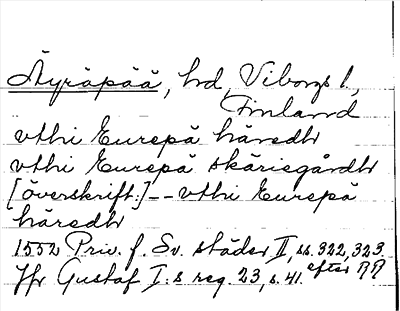 Äyräpää, hd, Viborgs l,
Finland
vthi Eurepä häredh
vthi Eurepä skäriegårdh
[överskrift:] -- vthi Eurepä
häredh
1552 Priv. f. Sv. städer II, ss. 322, 323.
Jfr Gustaf I:s reg. 23, s. 41. efter RR